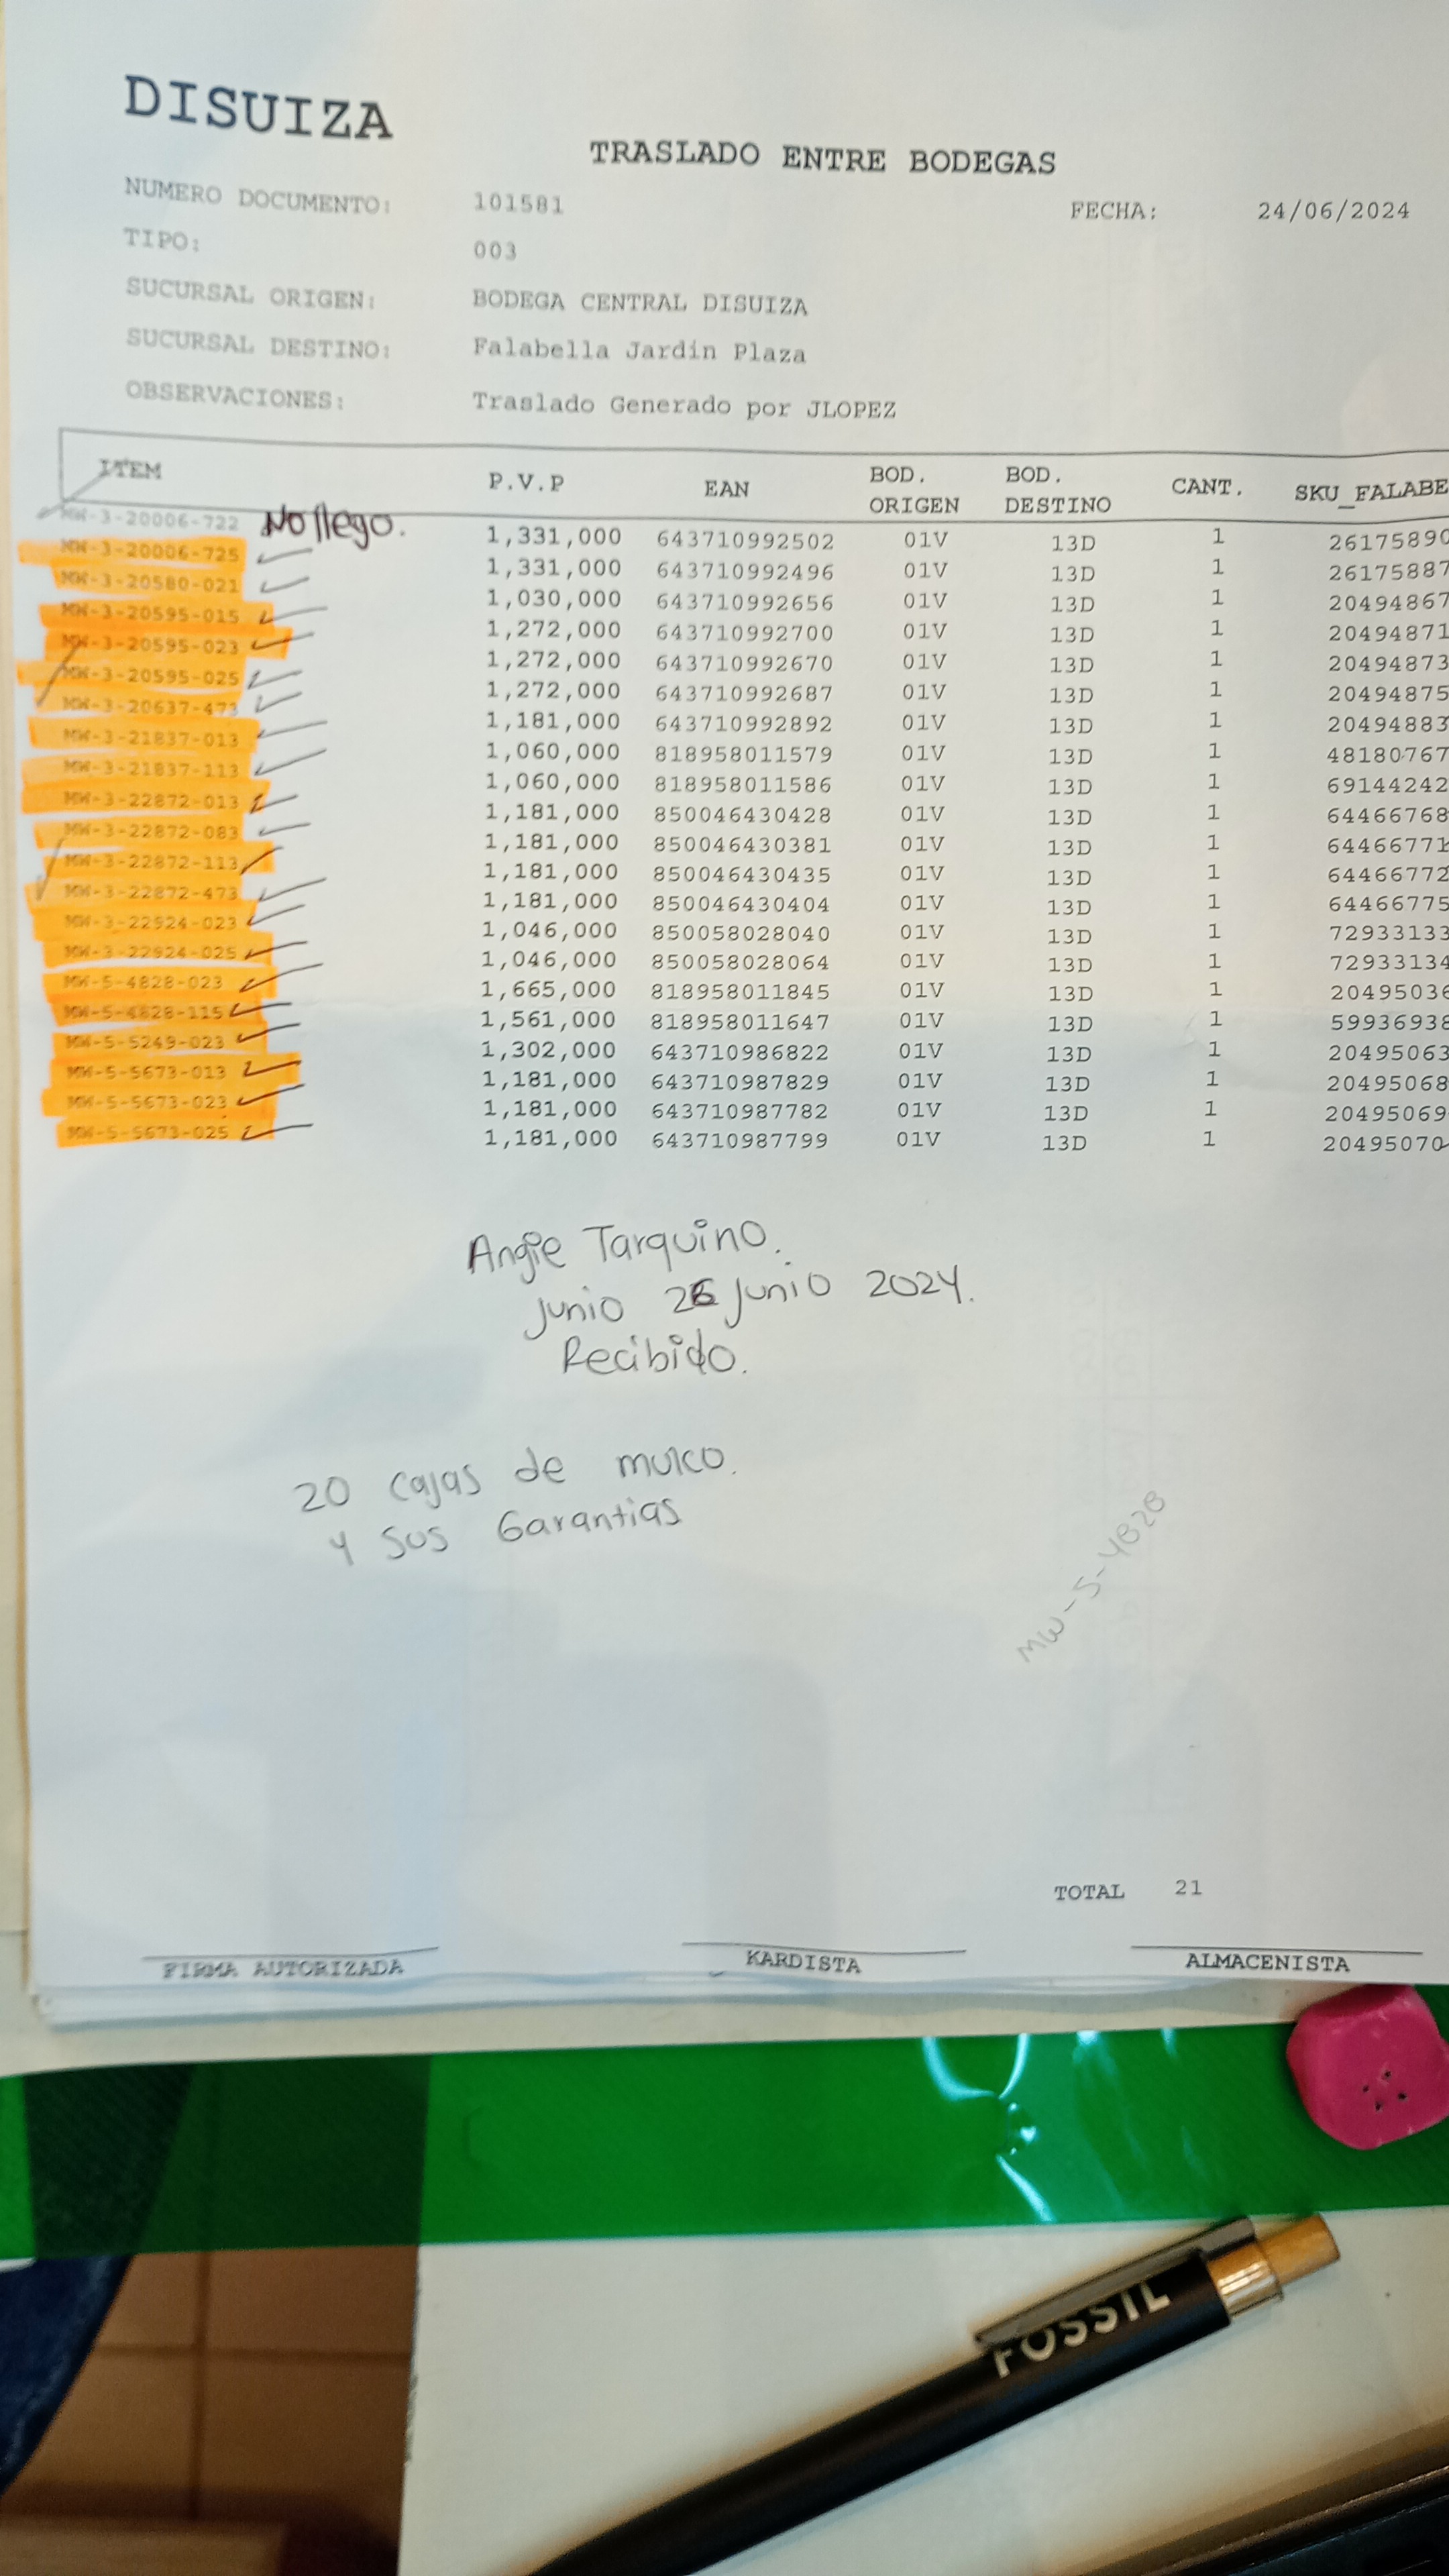 DISUIZA
TRASLADO ENTRE BODEGAS
NUMERO DOCUMENTO: 101581 FECHA: 24/06/2024
TIPO: 003
SUCURSAL ORIGEN: BODEGA CENTRAL DISUIZA
SUCURSAL DESTINO: Falabella Jardin Plaza
OBSERVACIONES: Traslado Generado por JLOPEZ
ITEM P.V.P EAN BOD. ORIGEN BOD. DESTINO CANT. SKU_FALABE
MW-3-20006-722 No llego. 1,331,000 643710992502 01V 13D 1 26175890
MW-3-20006-725 1,331,000 643710992496 01V 13D 1 26175887
MW-3-20580-021 1,030,000 643710992656 01V 13D 1 20494867
MW-3-20595-015 1,272,000 643710992700 01V 13D 1 20494871
MW-3-20595-023 1,272,000 643710992670 01V 13D 1 20494873
MW-3-20595-025 1,272,000 643710992687 01V 13D 1 20494875
MW-3-20637-473 1,181,000 643710992892 01V 13D 1 20494883
MW-3-21837-013 1,060,000 818958011579 01V 13D 1 48180767
MW-3-21837-113 1,060,000 818958011586 01V 13D 1 69144242
MW-3-22872-013 1,181,000 850046430428 01V 13D 1 64466768
MW-3-22872-083 1,181,000 850046430381 01V 13D 1 64466771
MW-3-22872-113 1,181,000 850046430435 01V 13D 1 64466772
MW-3-22872-473 1,181,000 850046430404 01V 13D 1 64466775
MW-3-22924-023 1,046,000 850058028040 01V 13D 1 72933133
MW-3-22924-025 1,046,000 850058028064 01V 13D 1 72933134
MW-5-4828-023 1,665,000 818958011845 01V 13D 1 20495036
MW-5-4828-115 1,561,000 818958011647 01V 13D 1 59936938
MW-5-5249-023 1,302,000 643710986822 01V 13D 1 20495063
MW-5-5673-013 1,181,000 643710987829 01V 13D 1 20495068
MW-5-5673-023 1,181,000 643710987782 01V 13D 1 20495069
MW-5-5673-025 1,181,000 643710987799 01V 13D 1 20495070
Angie Tarquino.
Junio 26 Junio 2024.
Recibido.
20 cajas de mulco.
y sus Garantias
MW-5-4828
TOTAL 21
FIRMA AUTORIZADA KARDISTA ALMACENISTA
FOSSIL